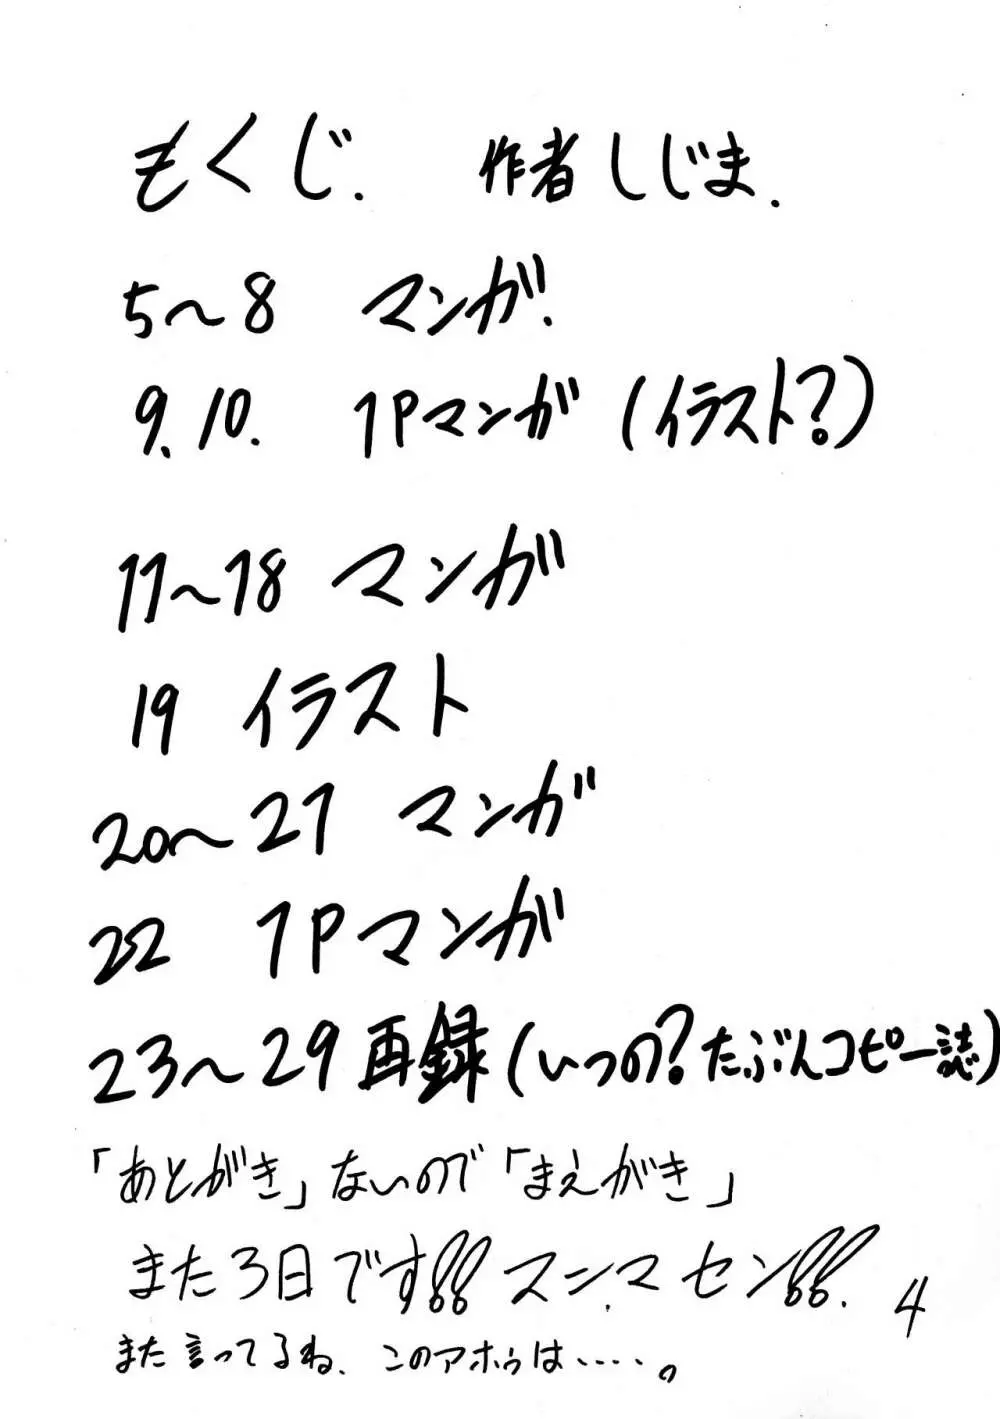 もくじ. 作者 しじま.
5〜8 マンガ.
9.10. 1Pマンガ (イラスト?)
11〜18 マンガ
19 イラスト
20〜21 マンガ
22 1Pマンガ
23〜29 再録(いつの?たぶんコピー誌)
「あとがき」ないので「まえがき」
また3日です!!スンマセン!!.
また言ってるね、このアホゥは・・・・・。
4